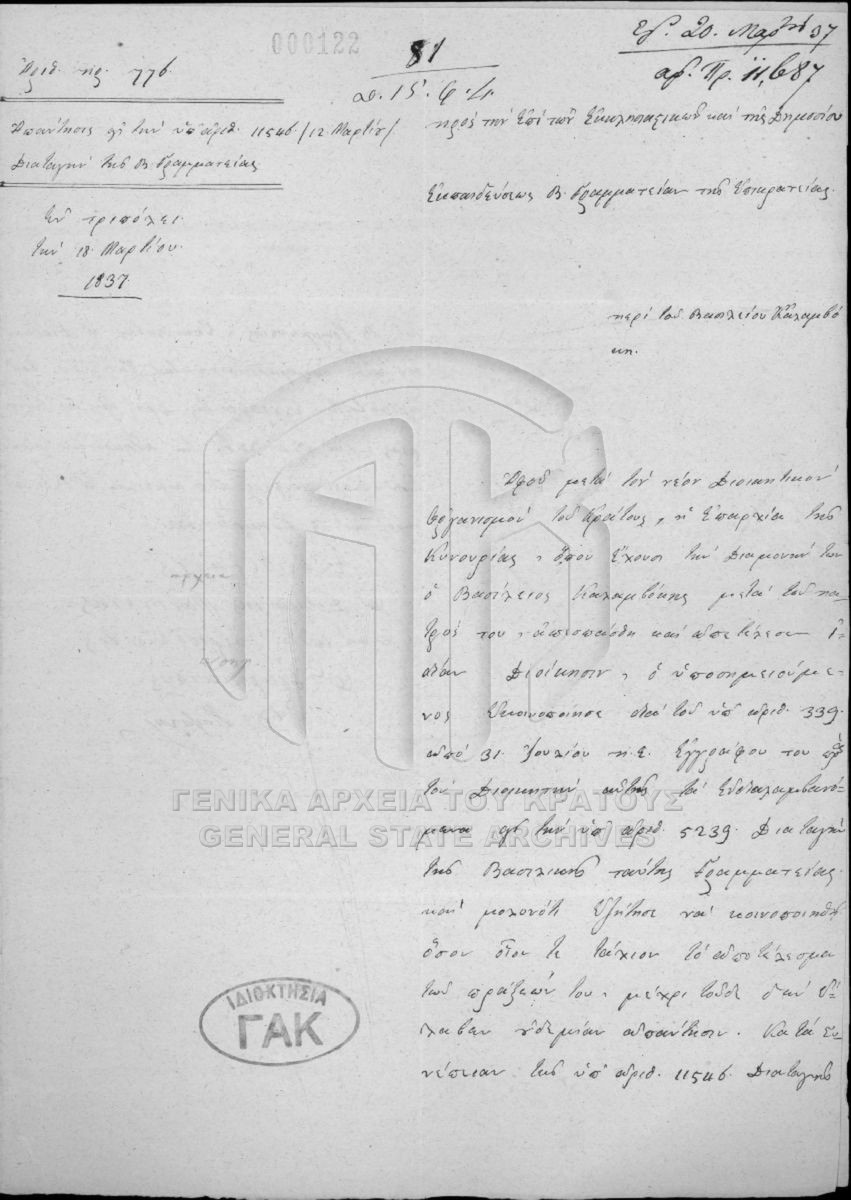 000122
81
Ἐλ. 20. Μαρτίου 37
ἀρ. Πρ. 11,687
Ἀριθ. πρ. 776.
Ἀπάντησις εἰς τὴν ὑπ' ἀριθ. 11546/12 Μαρτίου/
Διαταγὴν τῆς Β. Γραμματείας
Ἐν Τριπόλει
τὴν 18. Μαρτίου.
1837.
Πρὸς τὴν Ἐπὶ τῶν Ἐκκλησιαστικῶν καὶ τῆς Δημοσίου
Ἐκπαιδεύσεως Β. Γραμματείαν τῆς Ἐπικρατείας.
περὶ τοῦ Βασιλείου Καλαμβό
κη.
Ἀφοῦ μετὰ τὸν νέον Διοικητικὸν
ὀργανισμὸν τοῦ Κράτους, ἡ Ἐπαρχία τῆς
Κυνουρίας, ὅπου ἔχουσι τὴν Διαμονήν των
ὁ Βασίλειος Καλαμβόκης μετὰ τοῦ πα-
τρός του, ἀπεσπάσθη καὶ ἀπετέλεσεν ἰ-
δίαν Διοίκησιν, ὁ ὑποσημειούμε-
νος ἐκοινοποίησε διὰ τοῦ ὑπ' ἀριθ. 339.
ἀπὸ 31. Ἰουλίου π.ἔ. ἐγγράφου του πρὸς
τὸν Διοικητὴν αὐτῆς τὰ ἐνδιαλαμβανό-
μενα εἰς τὴν ὑπ' ἀριθ. 5239. Διαταγὴν
τῆς Βασιλικῆς ταύτης Γραμματείας.
καὶ μολονότι ἐζήτησε νὰ κοινοποιηθῇ
ὅσον οἷόν τε τάχιον τὸ ἀποτέλεσμα
τῶν πράξεών του, μέχρι τοῦδε δὲν ἔ-
λαβεν οὐδεμίαν ἀπάντησιν. Κατὰ συ-
νέπειαν τῆς ὑπ' ἀριθ. 11546. Διαταγῆς
ΓΕΝΙΚΑ ΑΡΧΕΙΑ ΤΟΥ ΚΡΑΤΟΥΣ
GENERAL STATE ARCHIVES
ΙΔΙΟΚΤΗΣΙΑ
ΓΑΚ